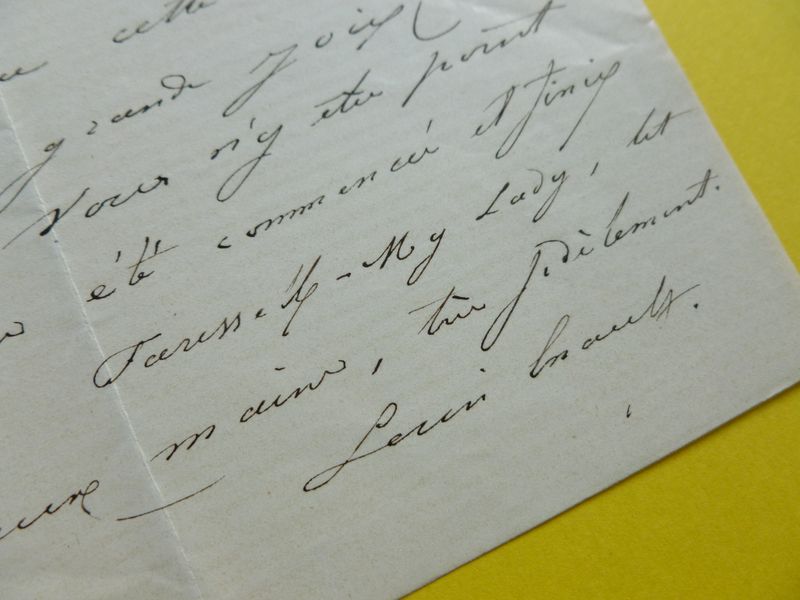 cette
grande joie
vous n'y etes point
été commencée et finie
Farewell - My Lady, let
maine, très fidèlement.
Louis Enault.